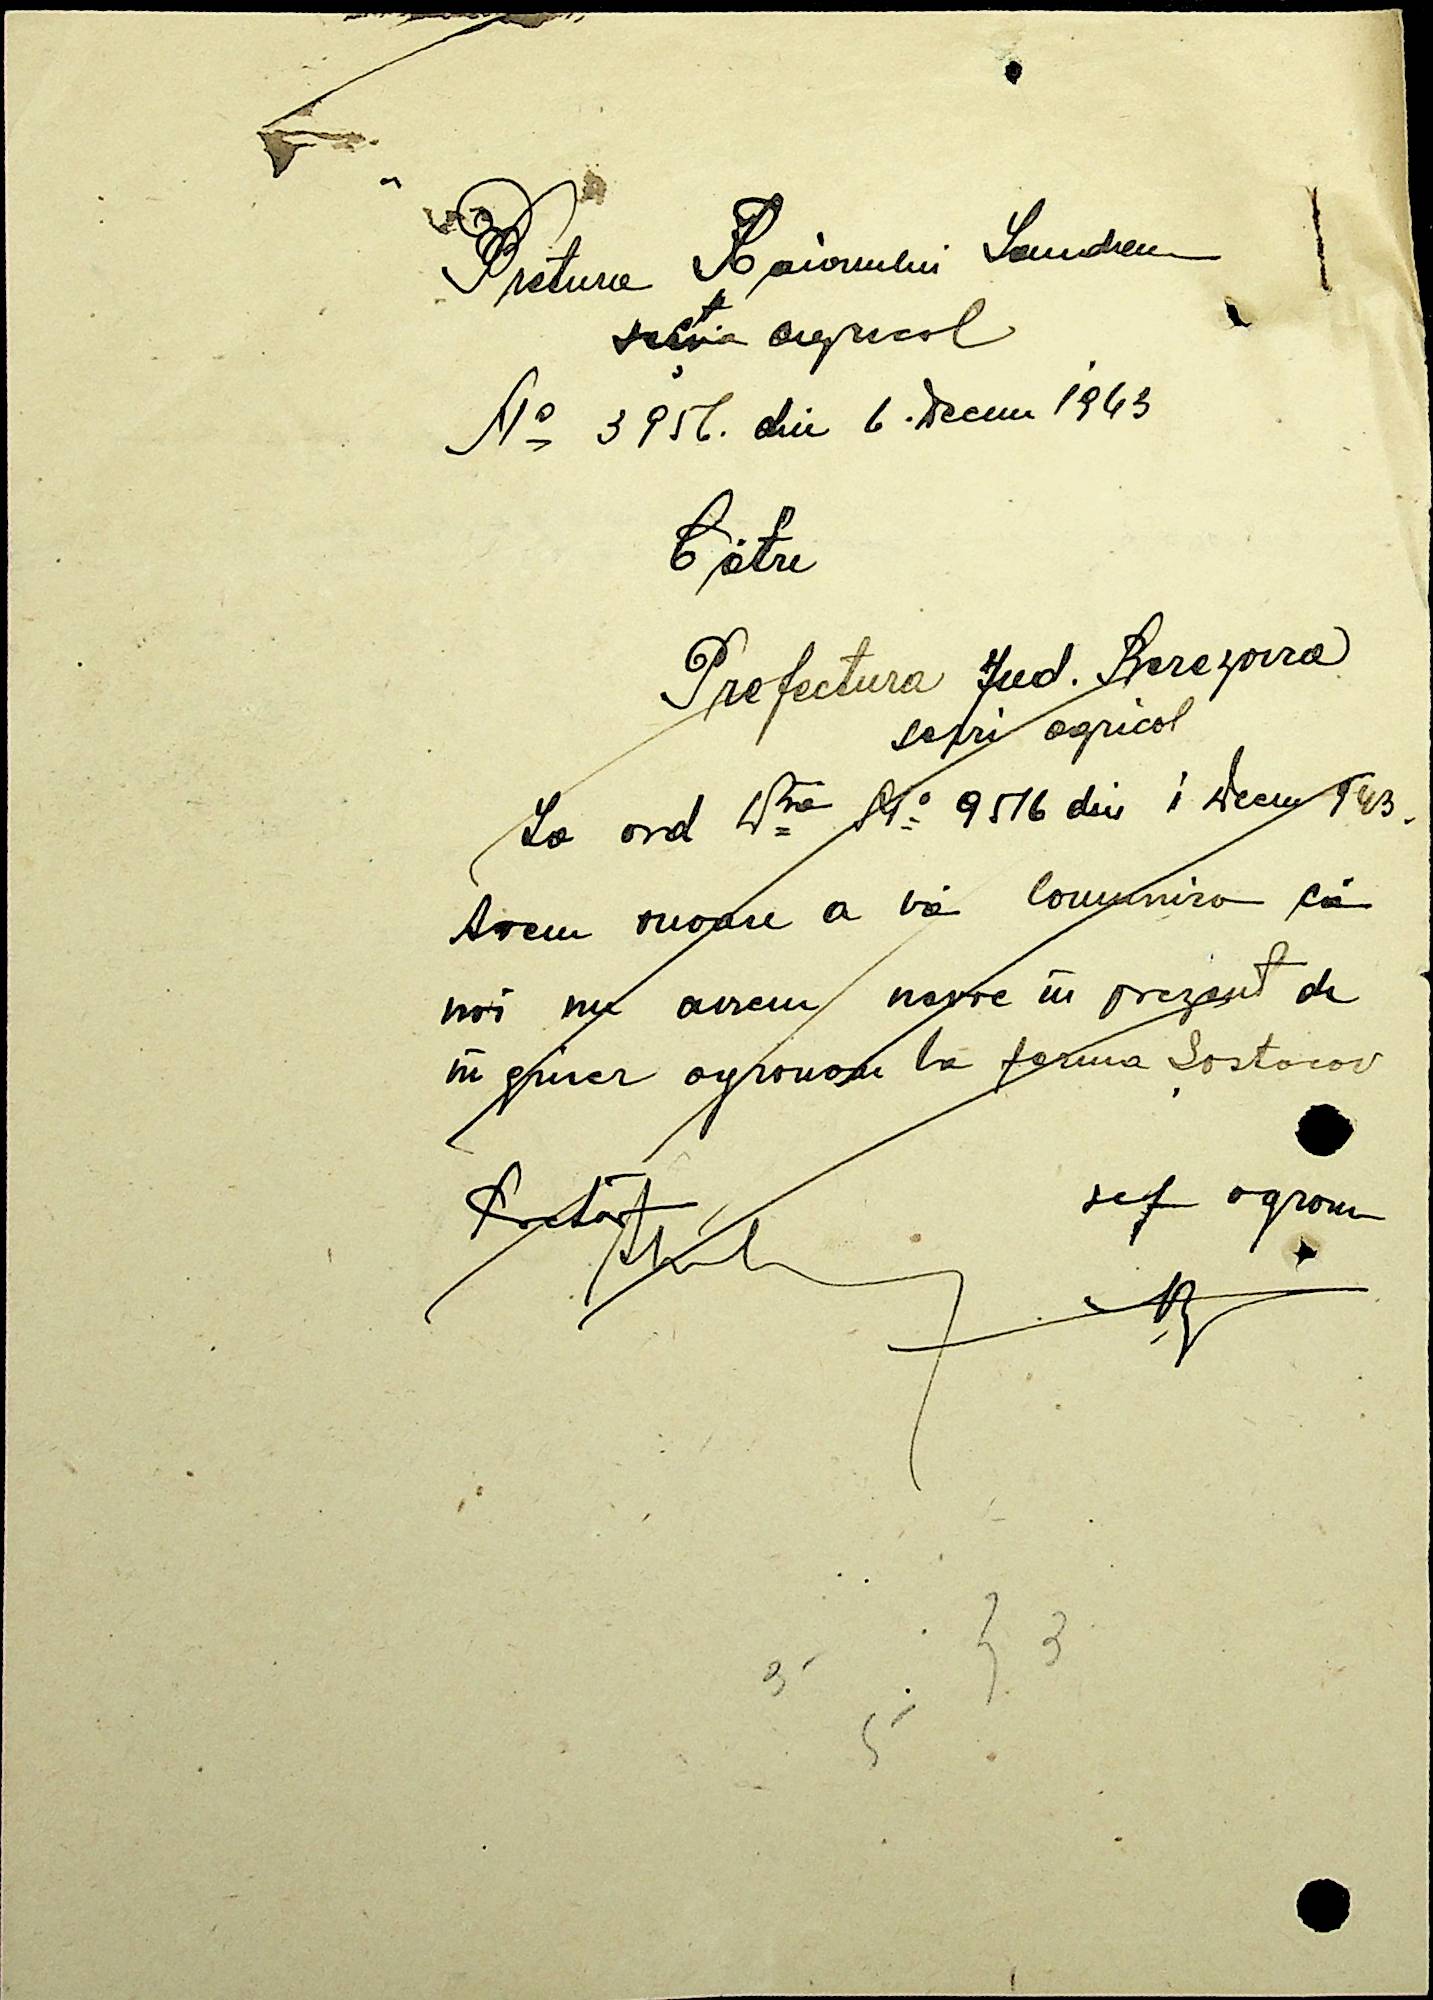 Pretura Raionului Landau
secția agricol
No 3956. din 6. Decem 1943
Către
Prefectura Jud. Berezovca
servi agricol
La ord Dvră No 9516 din 1 Decem 943.
Avem onoare a vă comunica că
noi nu avem nevoe în prezent de
înginer agronom la ferma Șostacov
Pretor
șef agronom